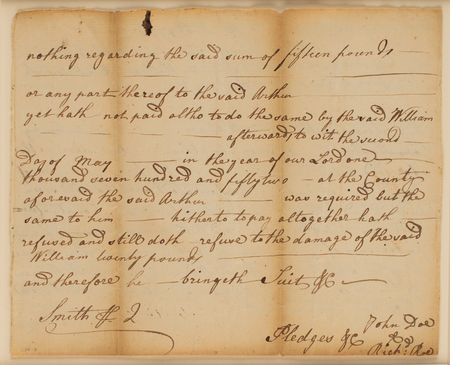 nothing regarding the said sum of fifteen pounds
or any part thereof to the said Arthur
yet hath not paid altho to do the same by the said William
afterwards to wit the second
Day of May in the year of our Lord one
thousand seven hundred and fifty two at the County
aforesaid the said Arthur was required but the
same to him hitherto to pay altogether hath
refused and still doth refuse to the damage of the said
William twenty pounds
and therefore he bringeth Suit &c
Smith
Pledges &c John Doe
&
Rich: Roe